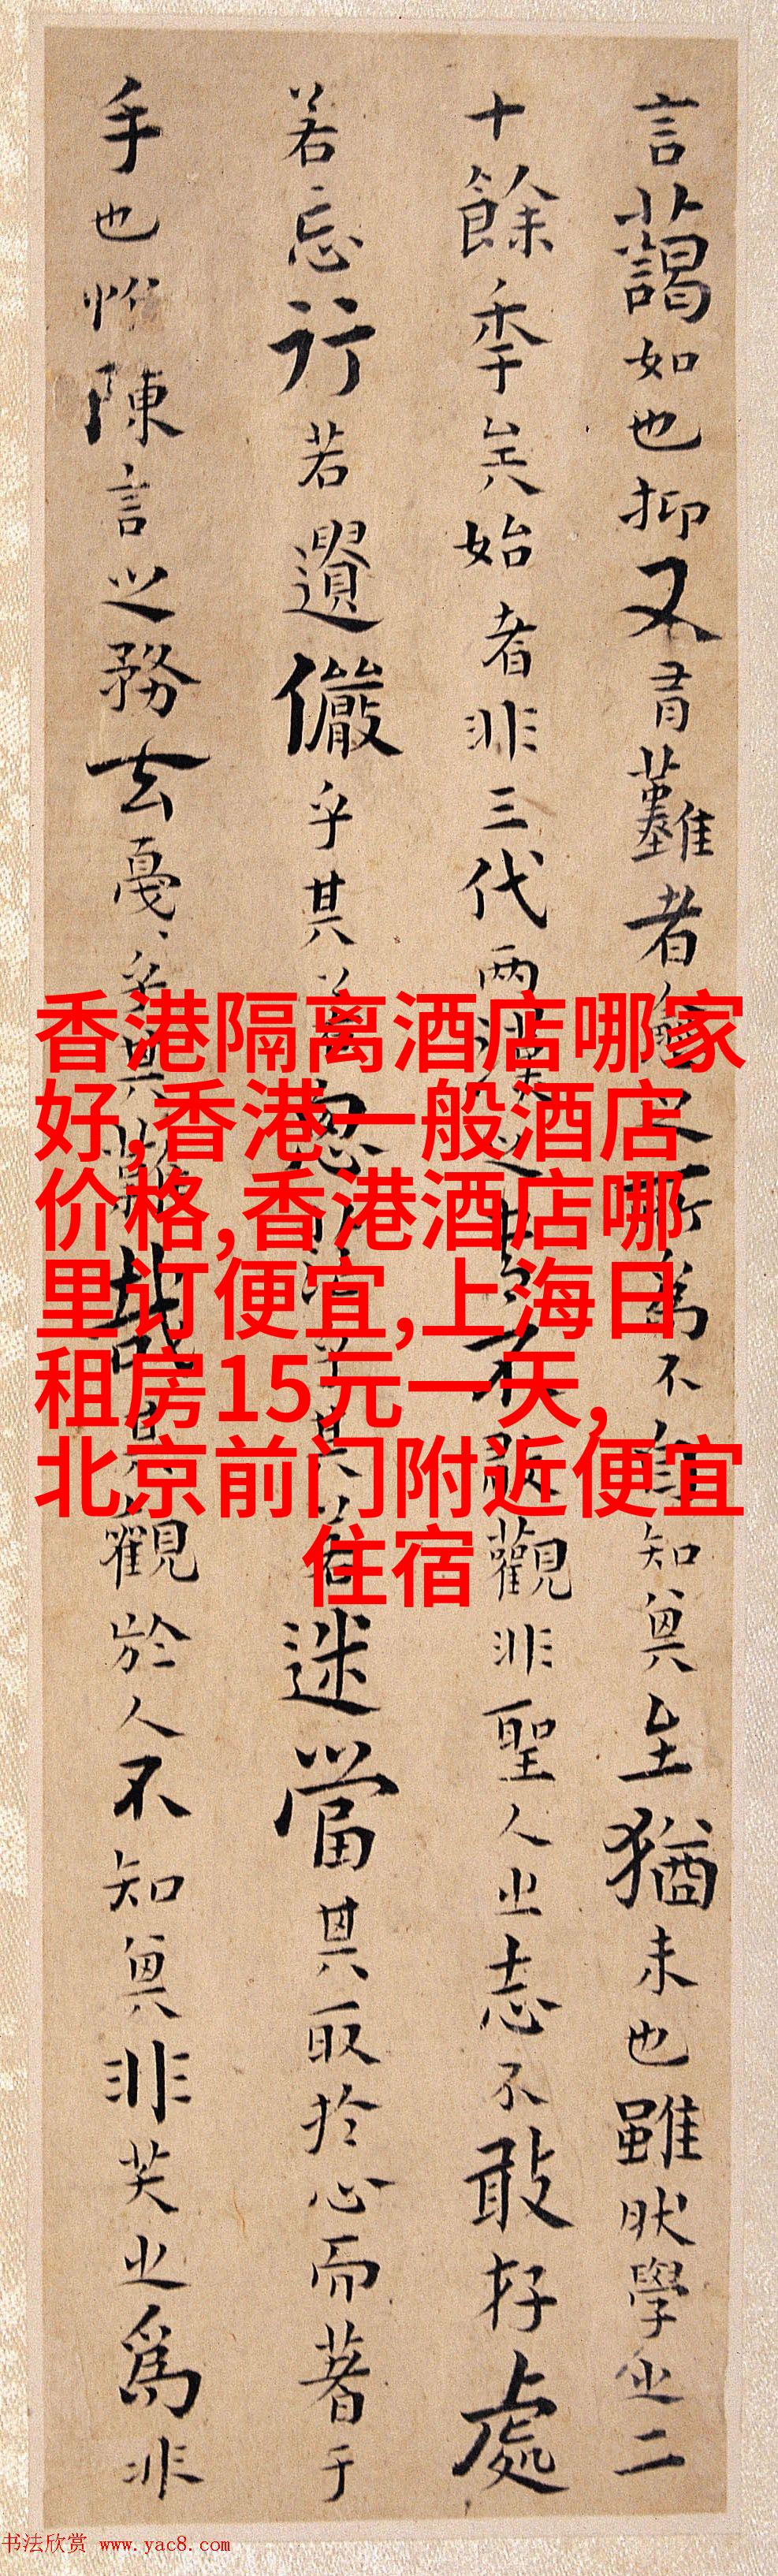 言藹如也抑又有難者愈之所為不自知其至猶未也雖然學之二
十餘年矣始者非三代兩漢之書不敢觀非聖人之志不敢存處
若忘行若遺儼乎其若思茫乎其若迷當其取於心而著于
手也惟陳言之務去戛〻乎其難哉其觀於人不知其非笑之為非
香港隔离酒店哪家
好,香港一般酒店
价格,香港酒店哪
里订便宜,上海日
租房15元一天,
北京前门附近便宜
住宿
书法欣赏 www.yac8.com